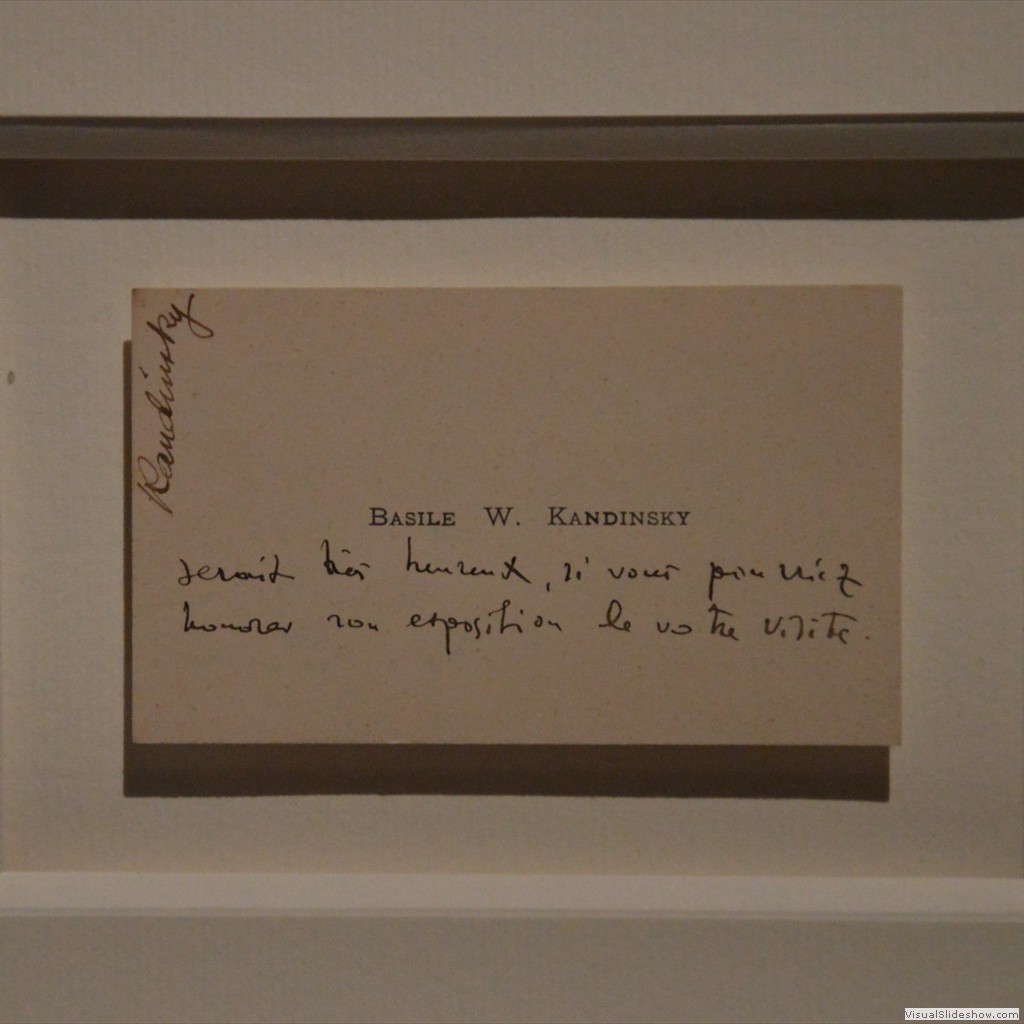 Kandinsky
BASILE W. KANDINSKY
serait très heureux, si vous pourriez
honorer son exposition de votre visite.
VisualSlideshow.com